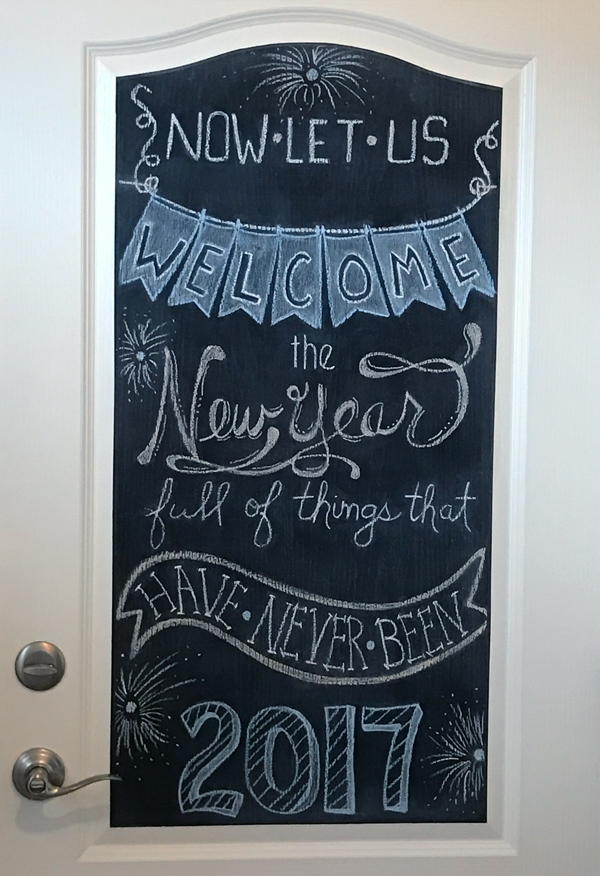 NOW•LET•US
WELCOME
the
New Year
full of things that
HAVE•NEVER•BEEN
2017